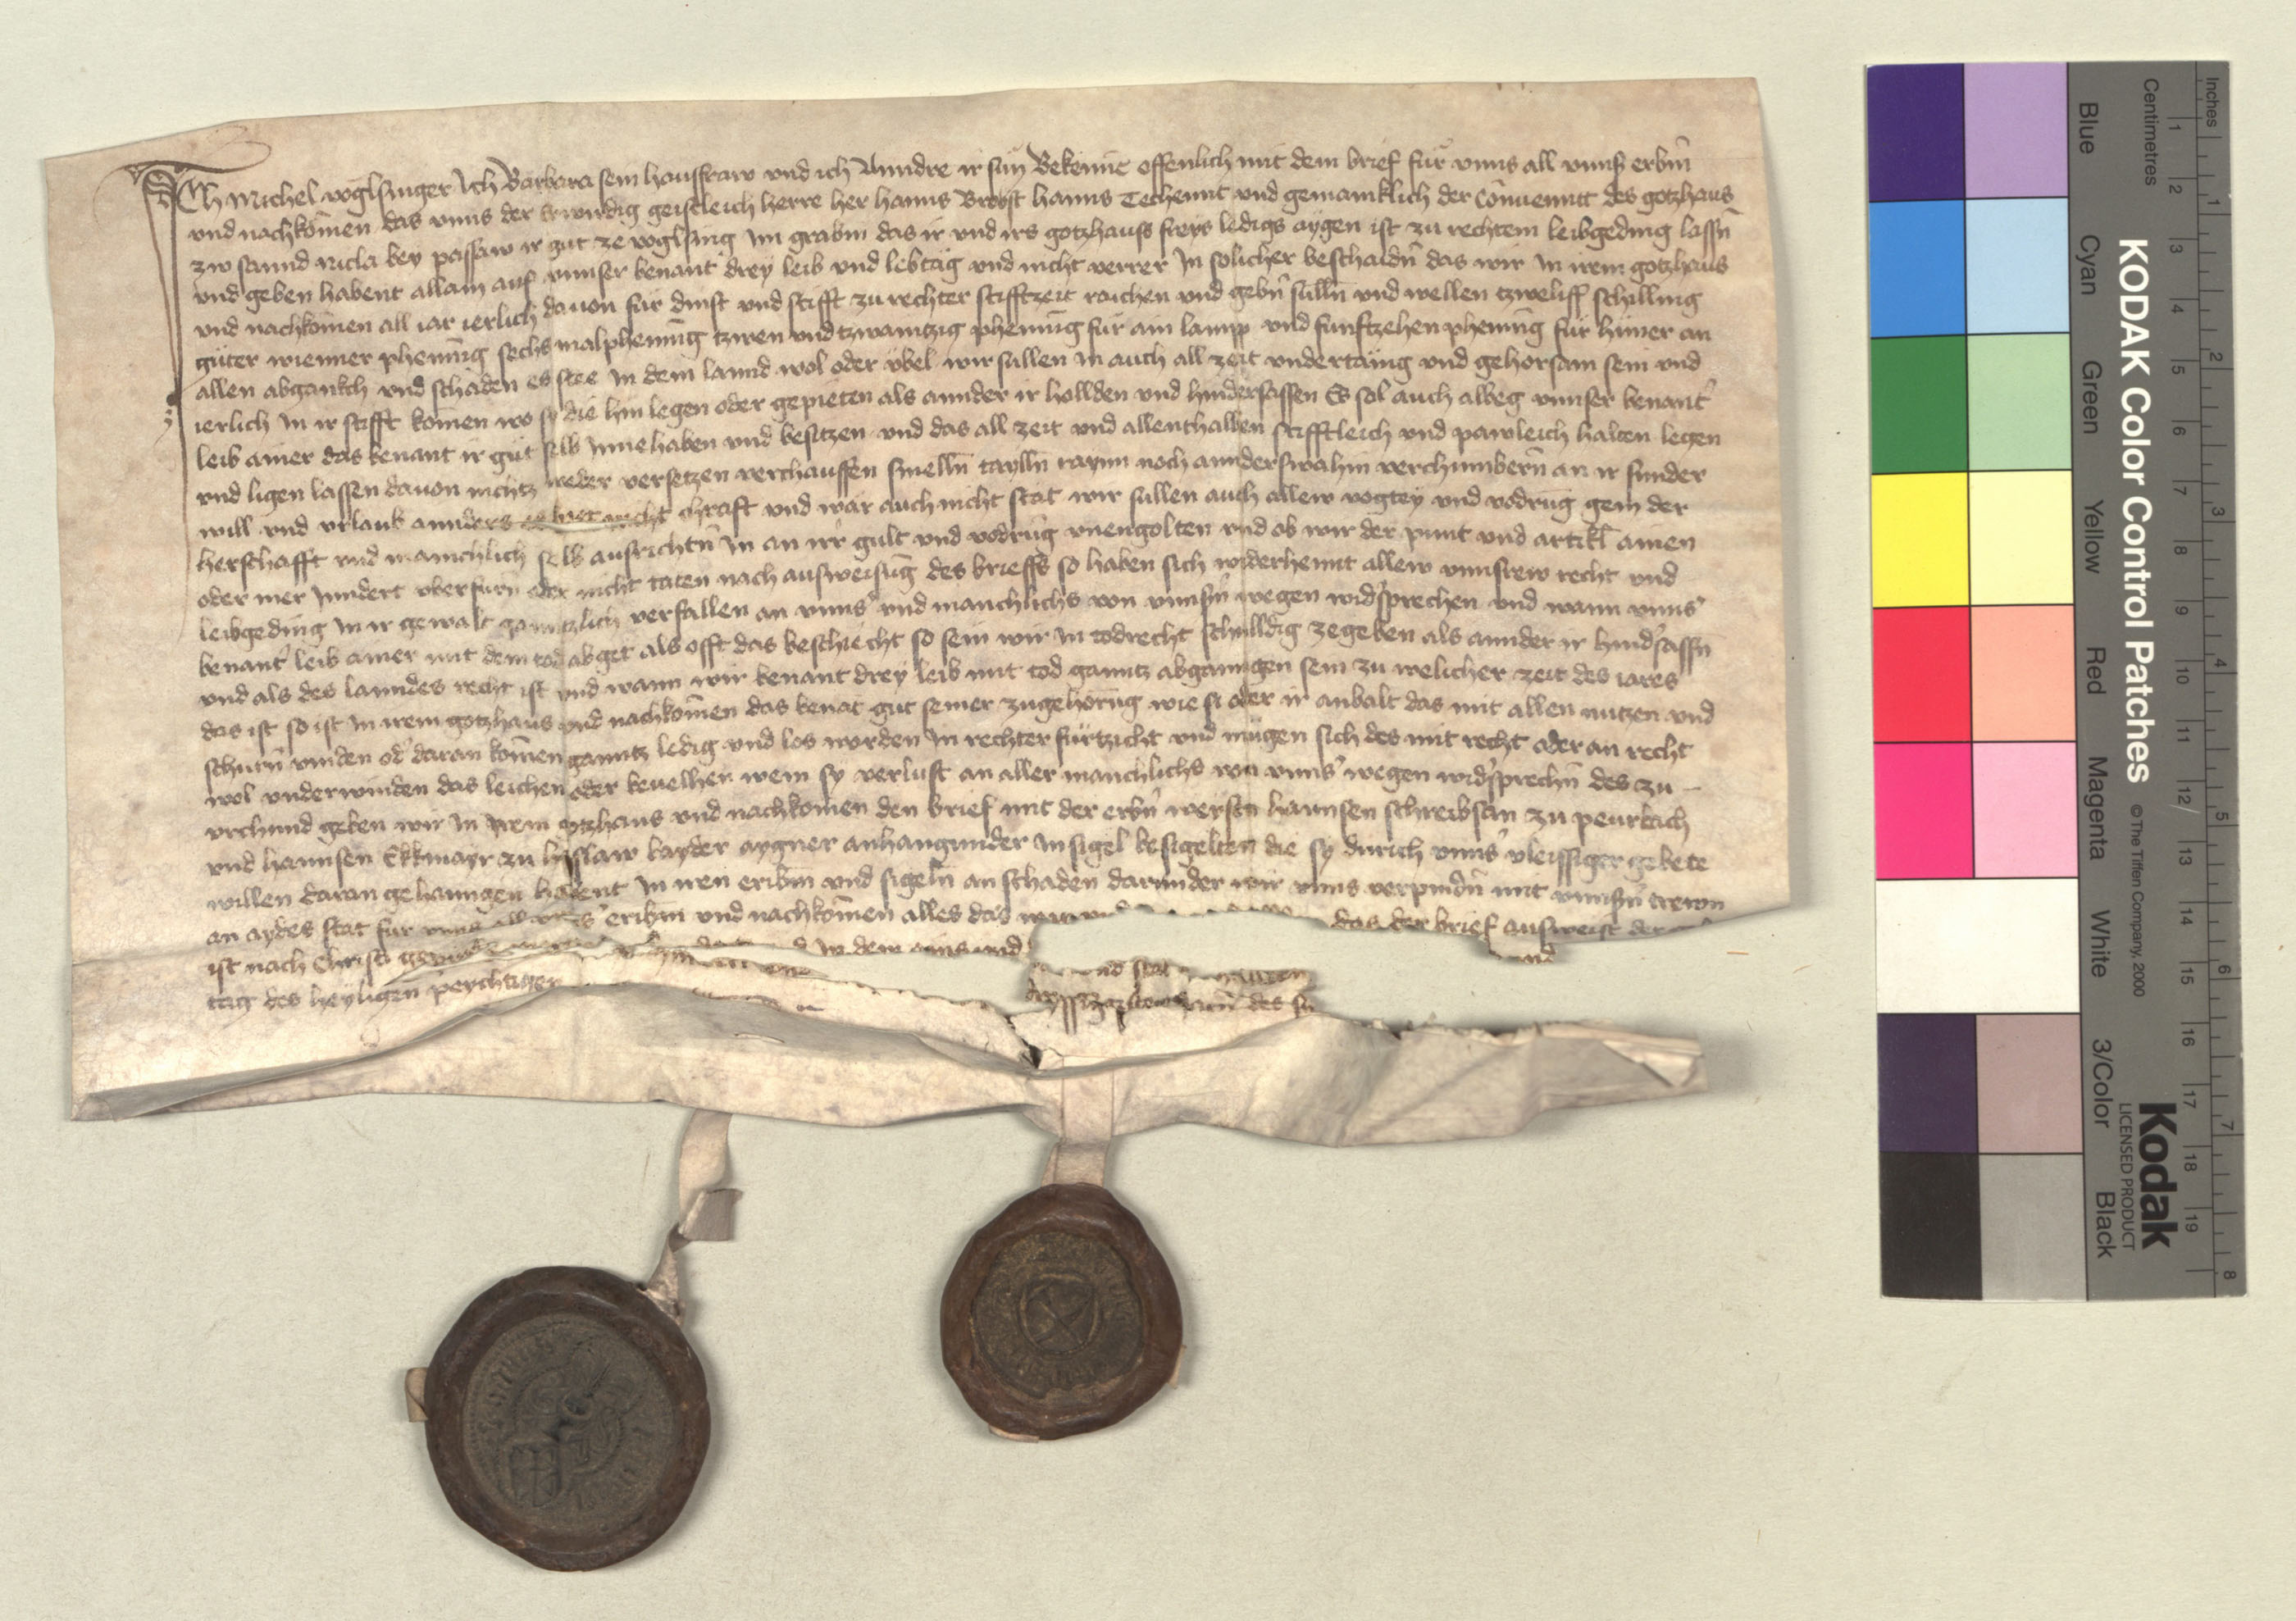 Ich Michel voglsinger Ich Barbara sein hausfraw vnd ich Anndre ir sun Bekenne offenlich mit dem brief fur vnns all vnns erbm
vnd nachkomen das vnns der erwirdig geistleich herre her hanns Brobst hanns Techennt vnd gemainklich der Conuenntt des gotzhaus
zw sannd Nicla bey passaw ir gut ze voglsing Im grabm das ir vnd irs gotzhauss freys ledigs aygen ist zu rechtem leibgeding lassn
vnd geben habent allain auf vnnser benant drey leib vnd lebtag vnd nicht verrer In solicher beschaidn das wir In irem gotzhaus
vnd nachkomen all iar ierlich dauon fur dinst vnd stifft zu rechter stifftzeit raichen vnd gebn sulln vnd wellen tzweliff schilling
guter wienner phennig sechs malphennig tzwen vnd tzwaintzig phennig fur ain lampp vnd funftzehen phennig fur huner an
allen abgankch vnd schaden es stee In dem lannd wol oder vbel wir sullen In auch all zeit vndertanig vnd gehorsam sein vnd
ierlich In ir stifft komen wo sy die hin legen oder gepieten als annder ir hollden vnd hindersassen Es sol auch albeg vnnser benant
leib ainer das benant ir gut selb Innehaben vnd besitzen vnd das all zeit vnd allenthallben stifftleich vnd pawleich halten legen
vnd ligen lassen dauon nichtz weder versetzen verchauffen smelln taylln raynn noch annderswahin verchumbern an ir sunder
will vnd vrlaub annders es hiet nicht chraft vnd war auch nicht stat wir sullen auch allew vogtey vnd vodrug gem der
herschafft vnd mainchlich selb ausrichtn In an irr gult vnd vodrug vnengolten vnd ob wir der punt vnd artikl ainen
oder mer Inndert vberfurn oder nicht taten nach ausweisug des brieffs so haben sich widerhennt allew vnnsrew recht vnd
leibgeding In ir gewalt ganntzlich verfallen an vnns vnd mainchlichs von vnnsn wegen widsprechen vnd wann vnns
benant leib ainer mit dem tod abget als offt das beschiecht so sein wir In todrecht schulldig zegeben als annder ir hindsassn
vnd als des lanndes recht ist vnd wann wir benant drey leib mit tod ganntz abganngen sein zu welicher zeit des iares
das ist so ist In irem gotzhaus vnd nachkomen das benat gut seiner zugehorug wie si oder ir anbalt das mit allen nutzen vnd
schurn vinden od daran komen ganntz ledig vnd los worden In rechter furtzicht vnd mugen sich des mit recht oder an recht
wol vnderwinden das leichen oder beuelhen wem sy verlust an aller mainchlichs von vnns wegen widsprechn des zu
vrchund geben wir In irem gotzhaus vnd nachkomen den brief mit der erbn weisen hannsen schreibsan zu peurbach
vnd hannsen Ekkmayr zu hyslaw bayder aygner anhangunder Insigel besigelten die sy durich vnns vleissiger gebete
willen daran gehanngen habent In iren eribm vnd sigeln an schaden darunder wir vnns verpindn mit vnnsn trewn
an aydes stat fur vnns all vnns eribm vnd nachkomen alles das das der brief ausweist der
ist nach Christi In dem ains vnd
vnd stat
tag des heyligen peychtiger
dryssigistn des
KODAK Color Control Patches © The Tiffen Company, 2000
Kodak
LICENSED PRODUCT
Blue Cyan Green Yellow Red Magenta White 3/Color Black
Centimetres 1 2 3 4 5 6 7 8 9 10 11 12 13 14 15 16 17 18 19
Inches 1 2 3 4 5 6 7 8